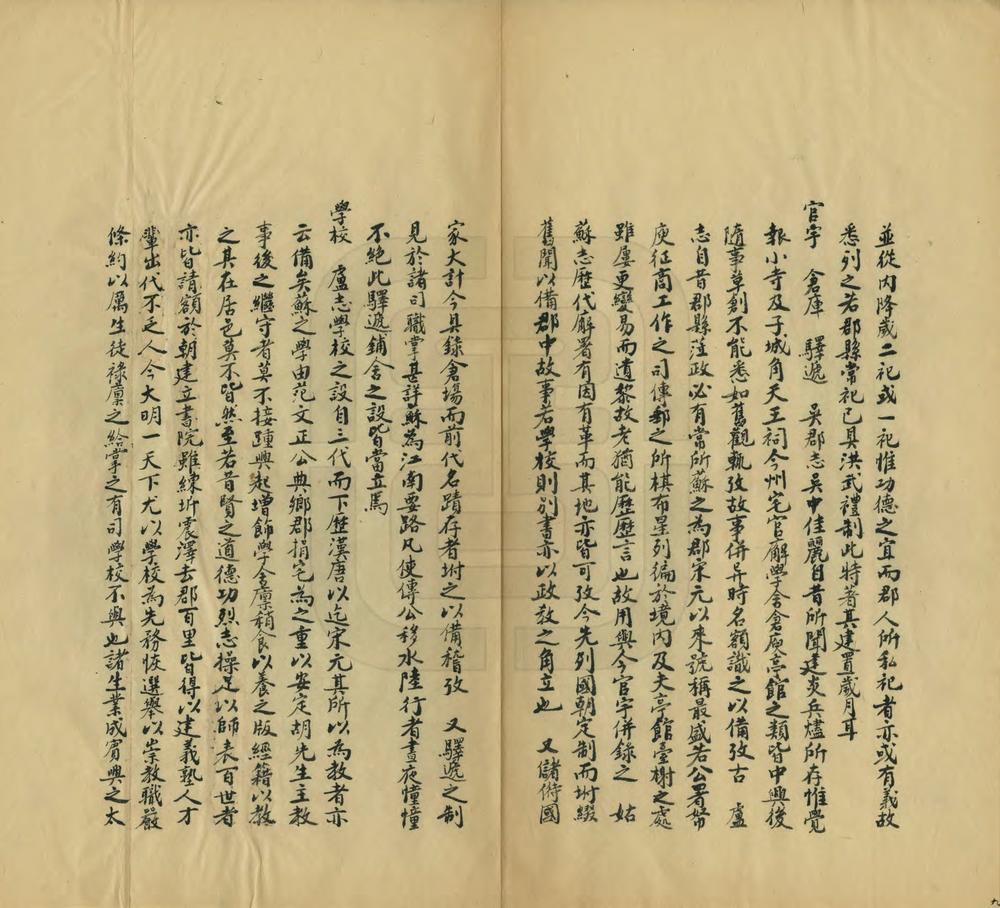 並從內降歲二祀或一祀惟功德之宜而郡人所私祀者亦或有義故
悉列之若郡縣常祀已具洪武禮制此特著其建置歲月耳
官宇　倉庫　驛遞　吳郡志吳中佳麗自昔所聞建炎兵燼所存惟覺
報小寺及子城角天王祠今州宅官廨學舍倉庾亭館之類皆中興後
隨事草創不能悉如舊觀輒攷故事併异時名額識之以備攷古　盧
志自昔郡縣蒞政必有常所蘇之為郡宋元以來號稱最盛若公署帑
庾征商工作之司傳郵之所棋布星列徧於境內及夫亭館臺榭之處
雖屢更變易而遺黎故老猶能歷歷言也故用與今官宇併錄之　姑
蘇志歷代廨署有因有革而其地亦皆可攷今先列國朝定制而坿綴
舊聞以備郡中故事若學校則別書亦以政教之角立也　又儲偫國
家大計今具錄倉場而前代名蹟存者坿之以備稽攷　又驛遞之制
見於諸司職掌甚詳蘇為江南要路凡使傳公移水陸行者晝夜憧憧
不絕此驛遞鋪舍之設皆當立焉
學校　盧志學校之設自三代而下歷漢唐以迄宋元其所以為教者亦
云備矣蘇之學由范文正公典鄉郡捐宅為之重以安定胡先生主教
事後之繼守者莫不接踵興起增飾學舍廩稍食以養之版經籍以教
之其在居邑莫不皆然至若昔賢之道德功烈志操足以師表百世者
亦皆請額於朝建立書院雖練圻震澤去郡百里皆得以建義塾人才
輩出代不乏人今大明一天下尤以學校為先務恢選舉以崇教職嚴
條約以厲生徒祿廩之給掌之有司學校不與也諸生業成賓興之太